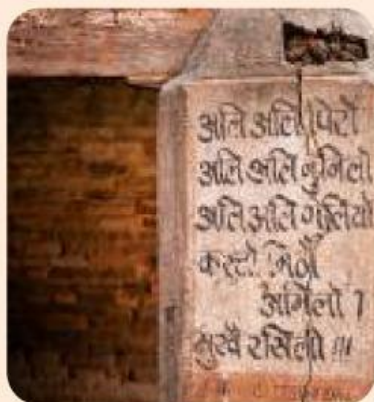 अलि अलि पिरो
अलि अलि नुनिलो
अलि अलि गुलियो
कस्तो मिठो
अमिलो ।
मुखै रसिलो !!!